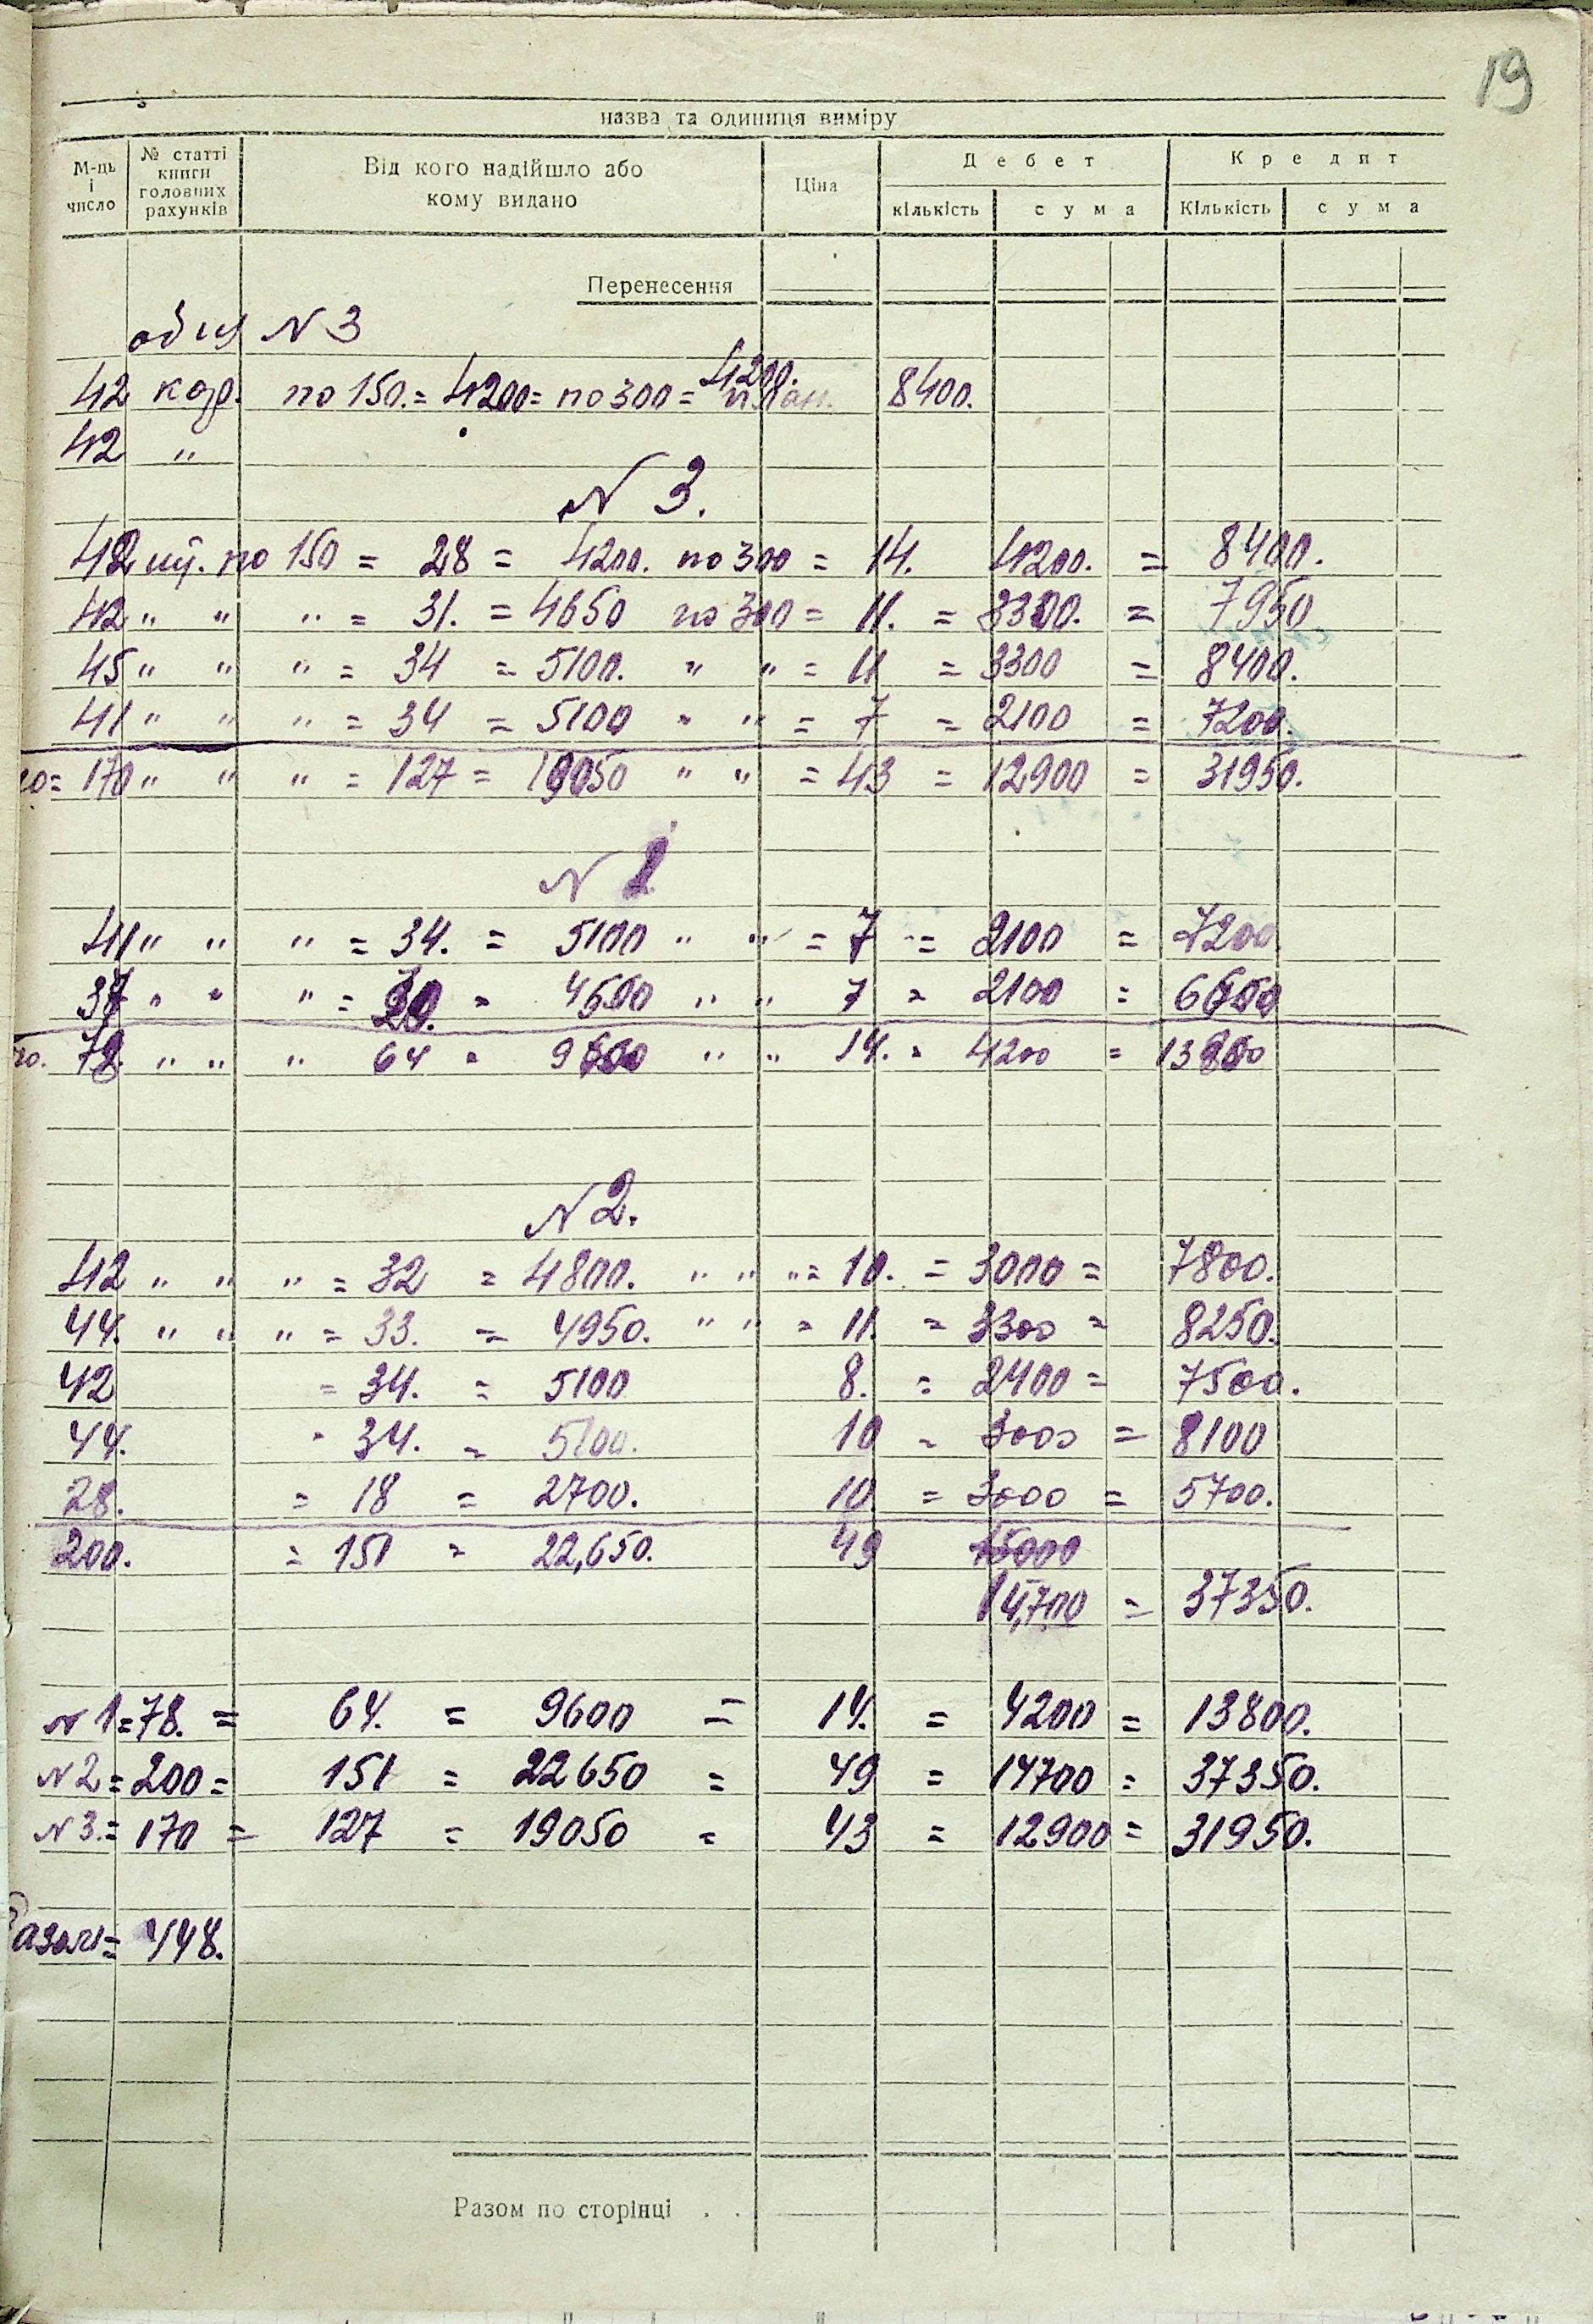 19
назва та одиниця виміру
М-ць і число № статті книги головних рахунків Від кого надійшло або кому видано Ціна Дебет Кредит
кількість сума Кількість сума
Перенесення
N 3
42 кор. по 150. = 4200 = по 300 = 4200. 8400.
42 "
N 3.
42 шт. по 150 = 28 = 4200. по 300 = 14. 4200. = 8400.
42 " " " = 31. = 4650 по 300 = 11. = 3300. = 7950
45 " " " = 34 = 5100. " " = 11 = 3300 = 8400.
41 " " " = 34 = 5100 " " = 7 = 2100 = 7200.
170 " " " = 127 = 19050 " " = 43 = 12900 = 31950.
N 1
41 " " " = 34. = 5100 " " = 7 = 2100 = 7200
37 " " " = 30. = 4500 " " 7 = 2100 = 6600
78. " " " 64 = 9600 " " 14. = 4200 = 13800
N 2.
42 " " " = 32 = 4800. " " " = 10. = 3000 = 7800.
44. " " " = 33. = 4950. " " = 11. = 3300 = 8250.
42 = 34. = 5100 8. = 2400 = 7500.
44. = 34. = 5100. 10 = 3000 = 8100
28. = 18 = 2700. 10 = 3000 = 5700.
200. = 151 = 22,650. 49 15000
14,700 = 37350.
N 1 = 78. = 64. = 9600 = 14. = 4200 = 13800.
N 2 = 200 = 151 = 22650 = 49 = 14700 = 37350.
N 3. = 170 = 127 = 19050 = 43 = 12900 = 31950.
Разом = 448.
Разом по сторінці . .